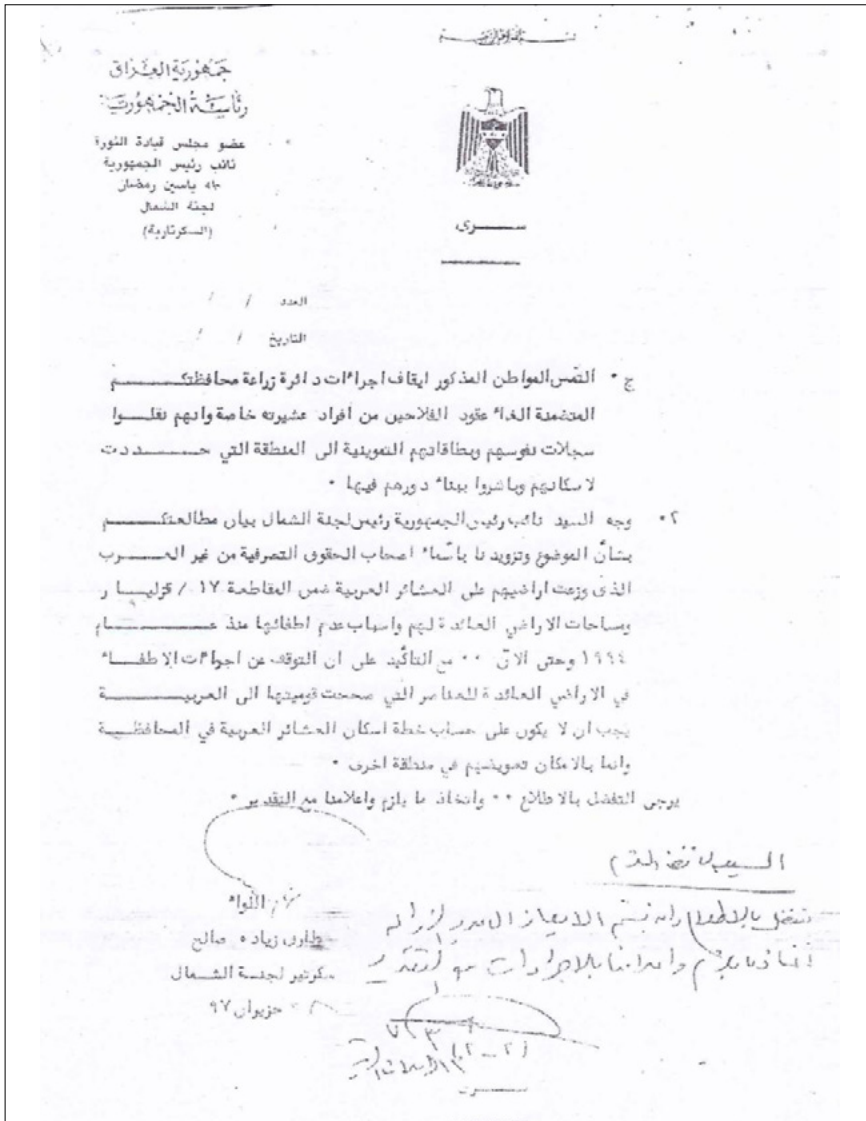 بسم الله الرحمن الرحيم
جمهورية العراق
رئاسة الجمهورية
عضو مجلس قيادة الثورة
نائب رئيس الجمهورية
طه ياسين رمضان
لجنة الشمال
(السكرتارية)
ســـرى
العدد / /
التاريخ / /
ج • التمس المواطن المذكور ايقاف اجراءات دائرة زراعة محافظتكـــم
المتضمنة الغاء عقود الفلاحين من أفراد عشيرته خاصة وانهم نقلـــوا
سجلات نفوسهم وبطاقاتهم التموينية الى المنطقة التي حـــددت
لاسكانهم وباشروا ببناء دورهم فيها •
٢• وجه السيد نائب رئيس الجمهورية رئيس لجنة الشمال بيان مطالعتكـــم
بشأن الموضوع وتزويدنا باسماء اصحاب الحقوق التصرفية من غير العـــرب
الذى وزعت اراضيهم على العشائر العربية ضمن المقاطعة ١٧ /
ومساحات الاراضي العائدة لهم واسباب عدم اطفائها منذ عـــام
١٩٩٤ وحتى الآن •• مع التأكيد على ان التوقف عن اجراءات الاطفـــاء
في الاراضي العائدة للعناصر التي صححت قوميتها الى العربيـــة
يجب ان لا يكون على حساب خطة اسكان العشائر العربية في المحافظـــة
وانما بالامكان تعويضهم في منطقة اخرى •
يرجى التفضل بالاطلاع •• واتخاذ ما يلزم واعلامنا مع التقدير •
السيد
تفضل بالاطلاع
بالاجراءات مع التقدير
اللواء
طارق زياد صالح
سكرتير لجنة الشمال
حزيران ٩٧
(٢-٢)
ســـرى